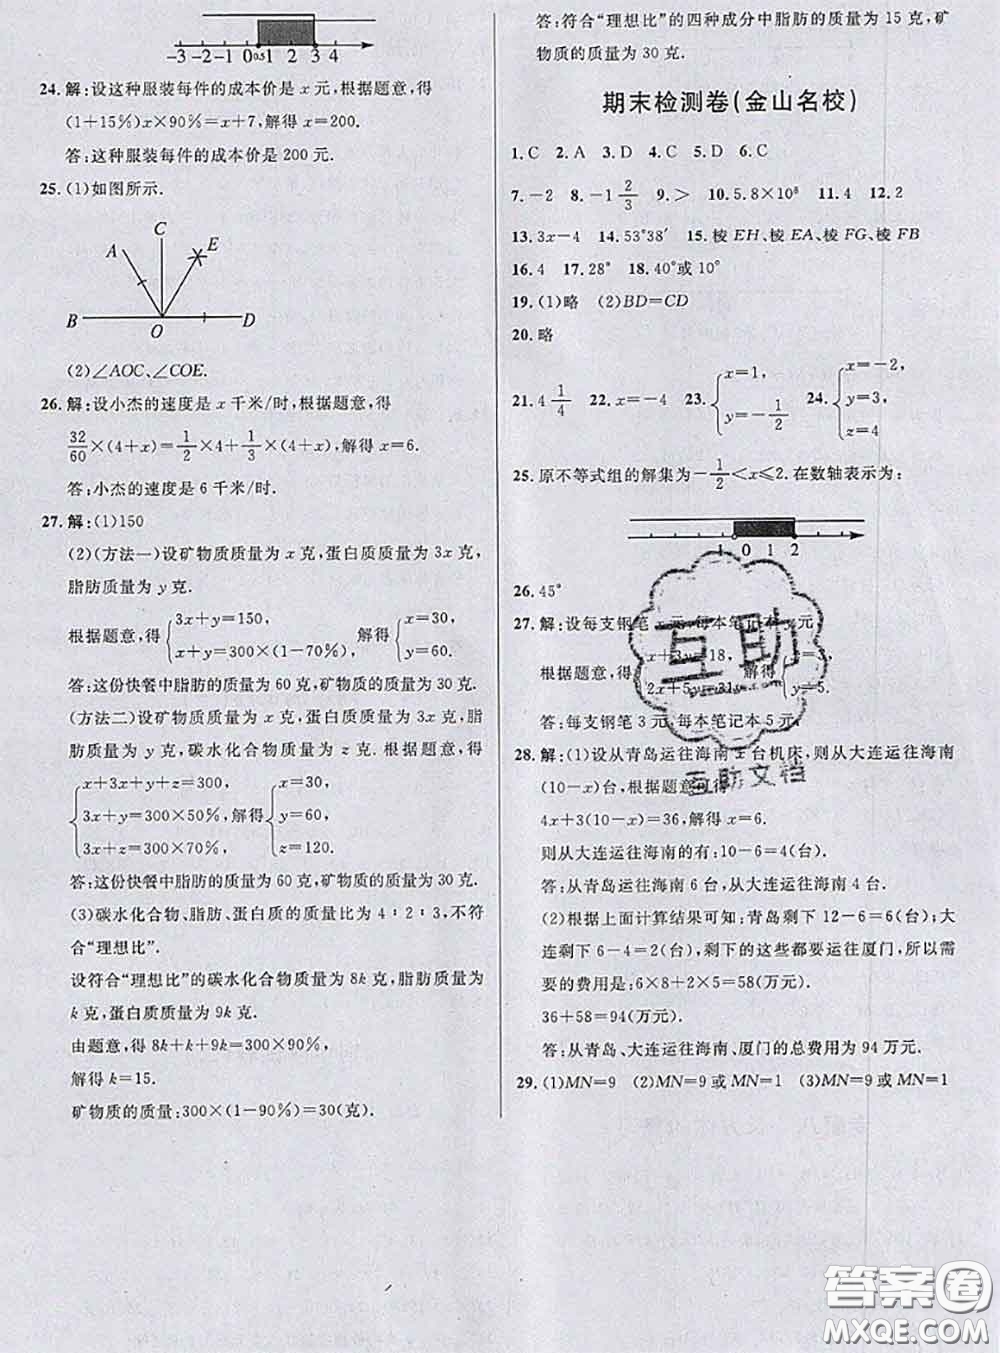 -3 -2 -1 0 0.5 1 2 3 4
24.解:设这种服装每件的成本价是 x 元,根据题意,得
(1+15%)x×90%=x+7,解得 x=200.
答:这种服装每件的成本价是 200 元.
25.(1)如图所示.
C
A E
B O D
(2)∠AOC、∠COE.
26.解:设小杰的速度是 x 千米/时,根据题意,得
32/60×(4+x)=1/2×4+1/3×(4+x),解得 x=6.
答:小杰的速度是 6 千米/时.
27.解:(1)150
(2)(方法一)设矿物质质量为 x 克,蛋白质质量为 3x 克,
脂肪质量为 y 克.
根据题意,得 {3x+y=150, x+y=300×(1-70%), 解得 {x=30, y=60.
答:这份快餐中脂肪的质量为 60 克,矿物质的质量为 30 克.
(方法二)设矿物质质量为 x 克,蛋白质质量为 3x 克,脂
肪质量为 y 克,碳水化合物质量为 z 克.根据题意,得
{x+3x+y+z=300, 3x+y=300×50%, 3x+z=300×70%, 解得 {x=30, y=60, z=120.
答:这份快餐中脂肪的质量为 60 克,矿物质的质量为 30 克.
(3)碳水化合物、脂肪、蛋白质的质量比为 4∶2∶3,不符
合“理想比”.
设符合“理想比”的碳水化合物质量为 8k 克,脂肪质量为
k 克,蛋白质质量为 9k 克.
由题意,得 8k+k+9k=300×90%,
解得 k=15.
矿物质的质量:300×(1-90%)=30(克).
答:符合“理想比”的四种成分中脂肪的质量为 15 克,矿
物质的质量为 30 克.
期末检测卷(金山名校)
1.C 2.A 3.D 4.C 5.D 6.C
7.-2 8.-1 2/3 9.> 10.5.8×10⁸ 11.4 12.2
13.3x-4 14.53°38′ 15.棱 EH、棱 EA、棱 FG、棱 FB
16.4 17.28° 18.40°或 10°
19.(1)略 (2)BD=CD
20.略
21.4 1/4 22.x=-4 23.{x=1, y=-1/2 24.{x=-2, y=3, z=4
25.原不等式组的解集为-1/2<x≤2.在数轴表示为:
-1 0 1 2
26.45°
27.解:设每支钢笔 x 元,每本笔记本 y 元
根据题意,得 {x+3y=18, 2x+5y=31, 解得 {x=3, y=5.
答:每支钢笔 3 元,每本笔记本 5 元.
28.解:(1)设从青岛运往海南 x 台机床,则从大连运往海南
(10-x)台,根据题意,可得
4x+3(10-x)=36,解得 x=6.
则从大连运往海南的有:10-6=4(台).
答:从青岛运往海南 6 台,从大连运往海南 4 台.
(2)根据上面计算结果可知:青岛剩下 12-6=6(台);大
连剩下 6-4=2(台),剩下的这些都要运往厦门,所以需
要的费用为:6×8+2×5=58(万元).
36+58=94(万元).
答:从青岛、大连运往海南、厦门的总费用为 94 万元.
29.(1)MN=9 (2)MN=9 或 MN=1 (3)MN=9 或 MN=1
互助
互助文档
答案圈
MXQE.COM